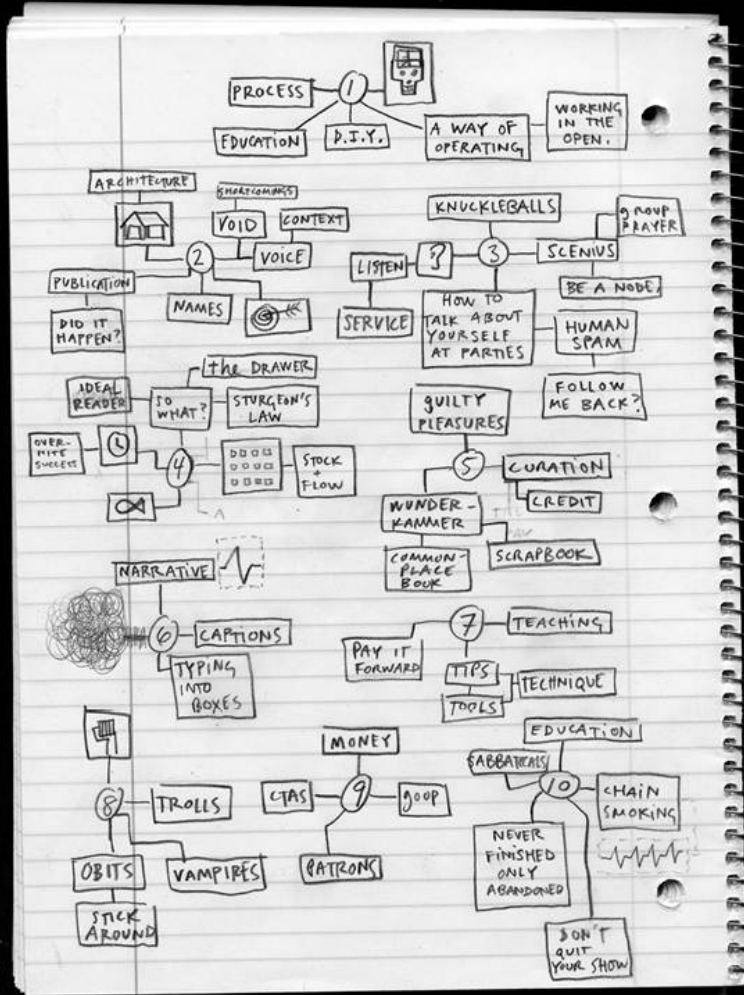 PROCESS
1
EDUCATION
D.I.Y.
A WAY OF
OPERATING
WORKING
IN THE
OPEN.
ARCHITECTURE
SHORTCOMINGS
VOID
CONTEXT
2
VOICE
PUBLICATION
NAMES
DID IT
HAPPEN?
KNUCKLEBALLS
GROUP
PRAYER
LISTEN
?
3
SCENIUS
BE A NODE.
SERVICE
HOW TO
TALK ABOUT
YOURSELF
AT PARTIES
HUMAN
SPAM
FOLLOW
ME BACK?
the DRAWER
IDEAL
READER
SO
WHAT?
STURGEON'S
LAW
OVER-
NITE
SUCCESS
4
STOCK
+
FLOW
GUILTY
PLEASURES
5
CURATION
CREDIT
WUNDER-
KAMMER
COMMON-
PLACE
BOOK
SCRAPBOOK
NARRATIVE
6
CAPTIONS
TYPING
INTO
BOXES
7
TEACHING
PAY IT
FORWARD
TIPS
TECHNIQUE
TOOLS
8
TROLLS
OBITS
VAMPIRES
STICK
AROUND
MONEY
CTAS
9
GOOP
PATRONS
EDUCATION
SABBATICALS
10
CHAIN
SMOKING
NEVER
FINISHED
ONLY
ABANDONED
DON'T
QUIT
YOUR SHOW